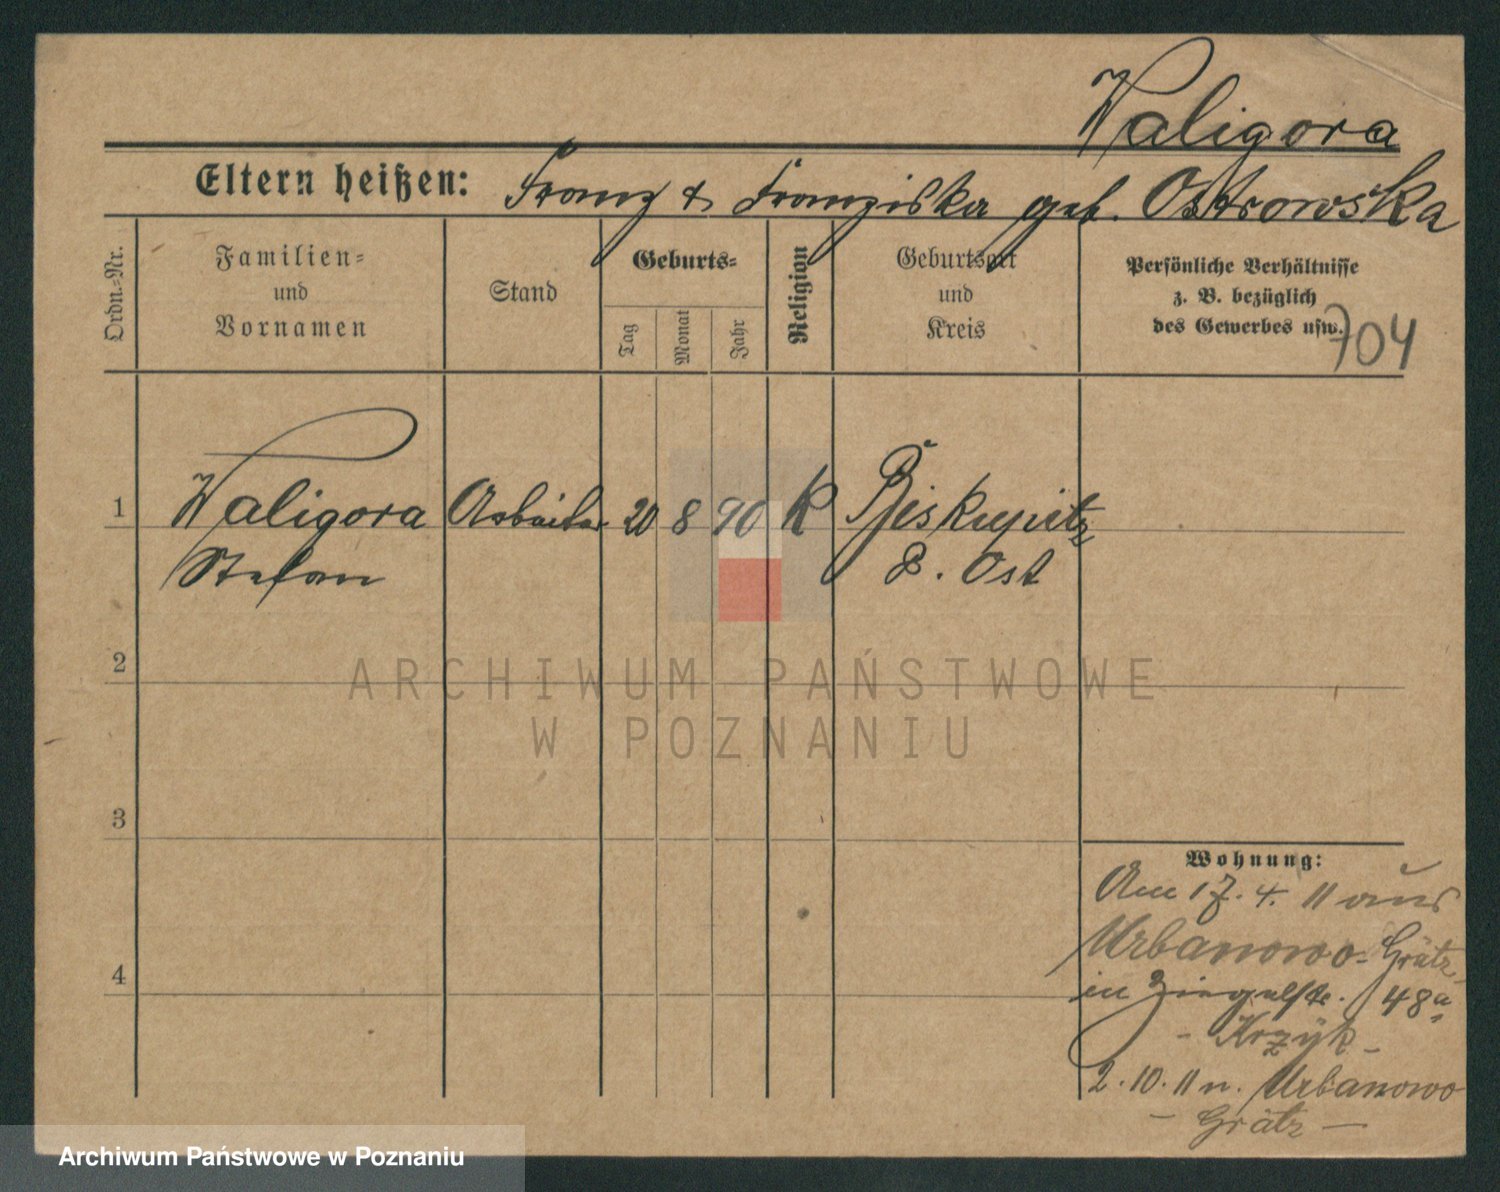 Waligora
Eltern heißen: Franz & Franziska geb. Ostrowska
Ordn.-Nr.
Familien- und Vornamen
Stand
Geburts-
Tag
Monat
Jahr
Religion
Geburtsort und Kreis
Persönliche Verhältnisse
z. B. bezüglich
des Gewerbes usw.
704
1 Waligora Arbeiter 20 8 90 K Biskupitz
Stefan P. Ost
2
3
4
Wohnung:
Am 17. 4. 11 aus
Urbanowo-Grätz
in Ziegelstr. 48a
- Krzyk -
2. 10. 11 n. Urbanowo
- Grätz -
ARCHIWUM PAŃSTWOWE
W POZNANIU
Archiwum Państwowe w Poznaniu